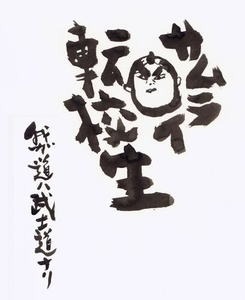 サムライ
転校生
道ハ武士道ナリ